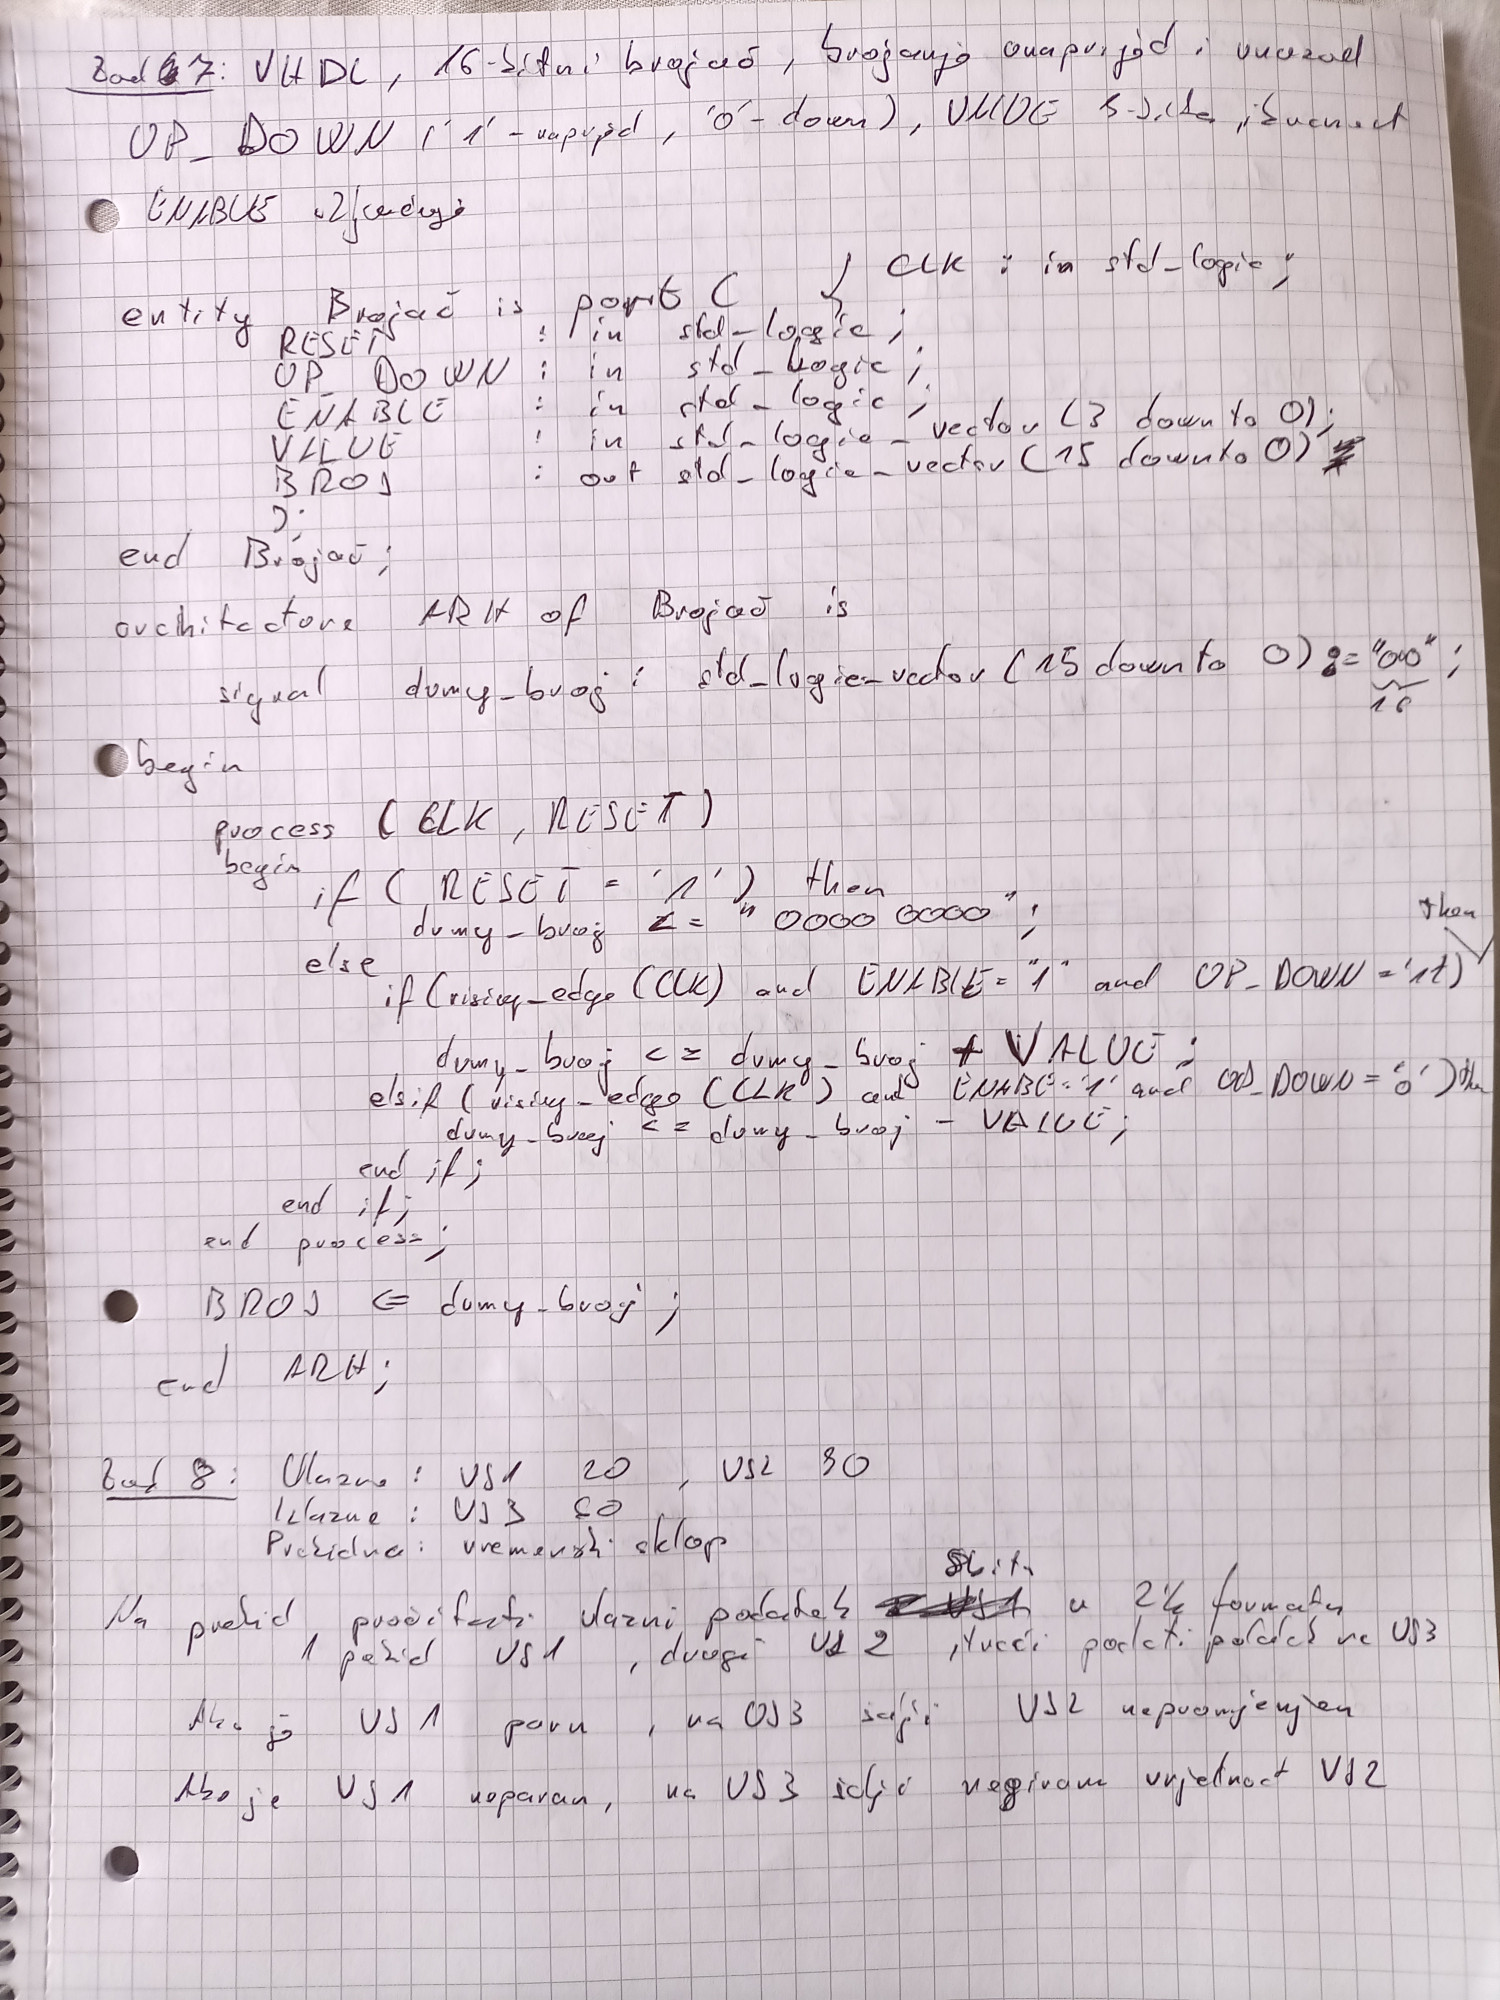 Zad 7: VHDL, 16-bitni brojač, brojanje unaprijed i unazad
UP_DOWN ('1' - naprijed, '0' - down), VALUE
ENABLE
entity Brojač is port (
CLK : in std_logic;
RESET : in std_logic;
UP_DOWN : in std_logic;
ENABLE : in std_logic;
VALUE : in std_logic_vector (3 downto 0);
BROJ : out std_logic_vector (15 downto 0)
);
end Brojač;
architecture ARH of Brojač is
signal dumy_broj : std_logic_vector (15 downto 0) := "000";
16
begin
process (CLK, RESET)
begin
if (RESET = '1') then
dumy_broj <= "0000 0000";
else
if (rising_edge (CLK) and ENABLE = "1" and UP_DOWN = '1') then
dumy_broj <= dumy_broj + VALUE;
elsif (rising_edge (CLK) and ENABE = '1' and UP_DOWN = '0') then
dumy_broj <= dumy_broj - VALUE;
end if;
end if;
end process;
BROJ <= dumy_broj;
end ARH;
Zad 8: Ulazne : VS1 20 , VS2 30
Izlazne : VS3
Prekidna : vremenski sklop
Na prekid, pročitati ulazni podatak 8bitn u 2'k formatu
1 prekid VS1 , drugi VS2 , treći podatak na VS3
Ako je VS1 paran , na VS3 šalji VS2 nepromjenjen
Ako je VS1 neparan, na VS3 šalji negiranu vrijednost VS2